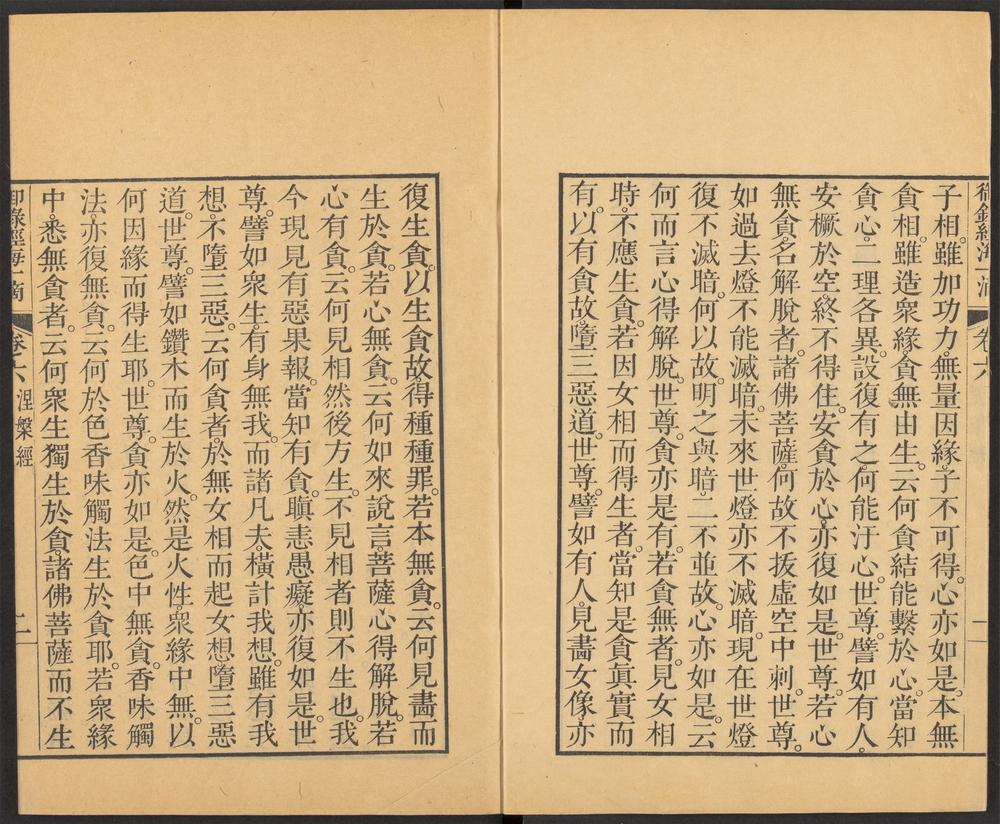 御錄經海一滴 卷六
子相。雖加功力。無量因緣。子不可得。心亦如是。本無
貪相。雖造衆緣。貪無由生。云何貪結能繫於心。當知
貪心。二理各異。設復有之。何能汙心。世尊。譬如有人。
安橛於空。終不得住。安貪於心。亦復如是。世尊。若心
無貪。名解脫者。諸佛菩薩。何故不拔虛空中刺。世尊。
如過去燈。不能滅暗。未來世燈。亦不滅暗。現在世燈
復不滅暗。何以故。明之與暗。二不並故。心亦如是。云
何而言。心得解脫。世尊。貪亦是有。若貪無者。見女相
時。不應生貪。若因女相而得生者。當知是貪眞實而
有。以有貪故。墮三惡道。世尊。譬如有人。見畵女像。亦
復生貪。以生貪故。得種種罪。若本無貪。云何見畵而
生於貪。若心無貪。云何如來說言。菩薩心得解脫。若
心有貪。云何見相然後方生。不見相者則不生也。我
今現見有惡果報。當知有貪。瞋恚愚癡。亦復如是。世
尊。譬如衆生。有身無我。而諸凡夫。橫計我想。雖有我
想。不墮三惡。云何貪者。於無女相而起女想。墮三惡
道。世尊。譬如鑽木而生於火。然是火性。衆緣中無。以
何因緣而得生耶。世尊。貪亦如是。色中無貪。香味觸
法。亦復無貪。云何於色香味觸法生於貪耶。若衆緣
中。悉無貪者。云何衆生獨生於貪。諸佛菩薩而不生
御錄經海一滴 卷六 涅槃經 二